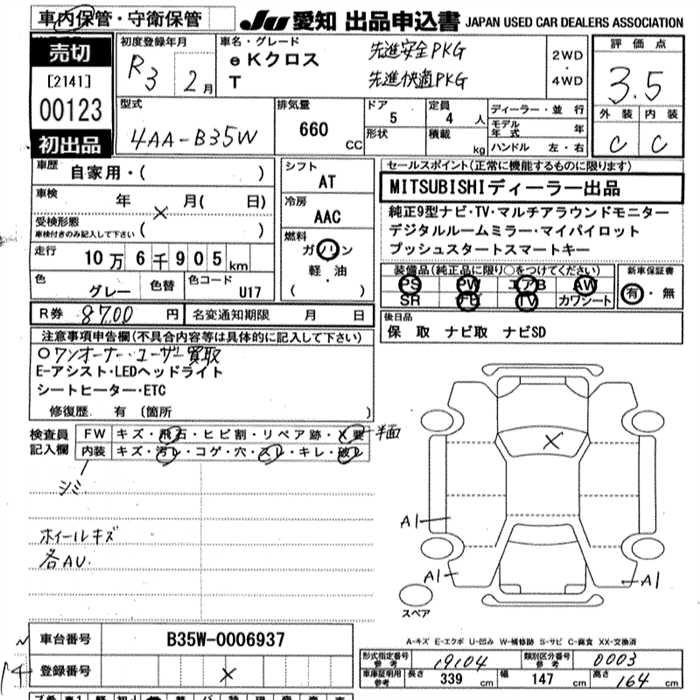 車内保管・守衛保管
JU 愛知 出品申込書 JAPAN USED CAR DEALERS ASSOCIATION
売切
[2141]
00123
初出品
初度登録年月
R3 2月
車名・グレード
eKクロス
T
先進安全PKG
先進快適PKG
2WD
・
4WD
評価点
3.5
外装 内装
C C
型式
4AA-B35W
排気量
660 CC
ドア 5
形状
定員 4 人
積載 kg
ディーラー・並行
モデル年式 年
ハンドル 左・右
車歴
自家用・( )
車検
年 × 月( 日)
受検形態
車検付きのみ記入して下さい ( )
走行 10万6千905km
色 グレー 色替 色コード U17
シフト
AT
冷房
AAC
燃料
ガソリン
軽・油
( )
セールスポイント(正常に機能するものに限ります)
MITSUBISHIディーラー出品
純正9型ナビ・TV・マルチアラウンドモニター
デジタルルームミラー・マイパイロット
プッシュスタートスマートキー
装備品(純正品に限り○をつけてください)
PS PW エアB AW
SR TV カワシート
新車保証書
有・無
R券 8700 円 名変通知期限 月 日
後日品
保 取 ナビ取 ナビSD
注意事項申告欄(不具合内容等は具体的に記入して下さい)
○ワンオーナー・ユーザー買取
E-アシスト・LEDヘッドライト
シートヒーター・ETC
修復歴 有 (箇所 )
検査員記入欄
FW キズ・飛石・ヒビ割・リペア跡・X要 半面
内装 キズ・汚レ・コゲ・穴・スレ・キレ・破レ
シミ
ホイールキズ
各AU.
×
A1
A1 A1
スペア
A-キズ E-エクボ U-凹み W-補修跡 S-サビ C-腐食 XX-交換済
車台番号 B35W-0006937
登録番号 ×
形式指定番号 参考 19104 類別区分番号 参考 0003
車庫証明用 参考 長さ 339 cm 幅 147 cm 高さ 164 cm